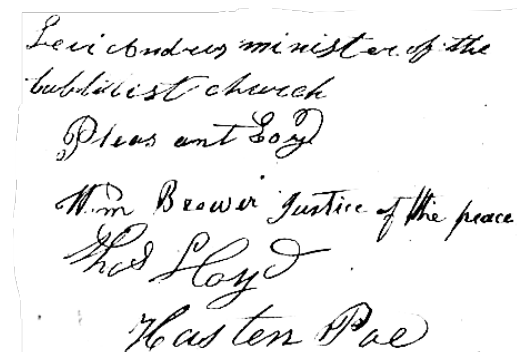 Levi Andrus minister of the
babtist church
Pleas ant Loyd
Wm Brewer Justice of the peace
Thos Lloyd
Hasten Poe